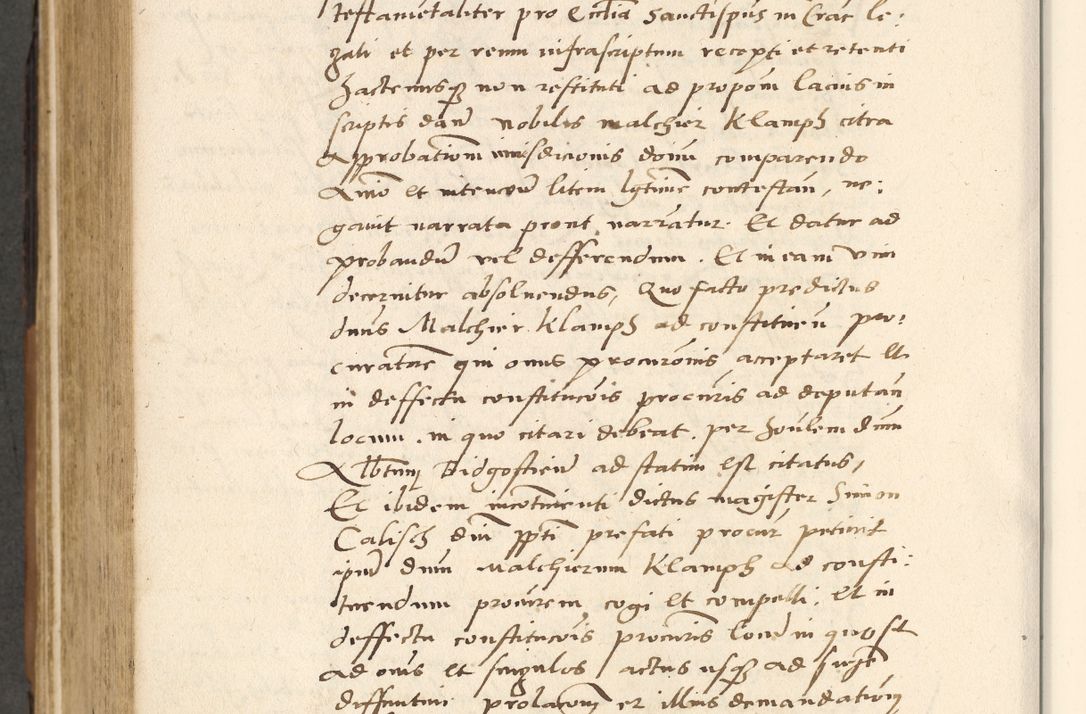 testametaliter pro Ecclia Sanctispus in Crac le:
gali et per reum infrascriptum recepti et retenti
hactenusq non restituti ad propom lacius in
scriptis dan nobilis malchier Klamph citra
Approbationem iurisdicionis domi comparendo
Animo et intencon litem lgtime contestan, ne:
gavit narrata prout narrantur. Et datur ad
probandu vel defferendum. Et in eam vim
decernitur absoluendus, Quo facto predictus
dnus Malchier Klamph ad constituen pro:
curatore qui onus procuronis acceptaret Et
in deffectu constitucois procuris ad deputan
locum in quo citari debeat. per honilem dnm
Albtum Bidgostien ad statim est citatus,
Et ibidem incontinenti dictus magister Simon
Calisch dni ppti prefati procur petivit
ipm dnum Malchierum Klamph ad consti:
tuendum procurem cogi et compelli. Et in
deffectu constitucois procuris locum in quo sit
ad ons et singulos actus usq ad sugen
diffinitivi prolacom et illius demandationem